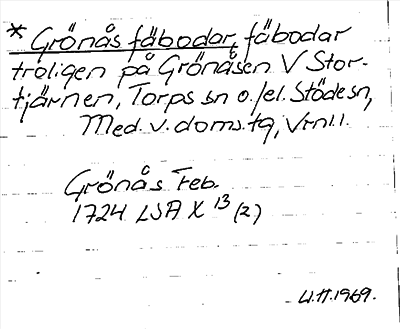 * Grönås fäbodar, fäbodar
troligen på Grönåsen V Stor-
tjärnen, Torps sn o./el. Stöde sn,
Med. v. doms. tg, Vrnl.l.
Grönås Feb.
1724 LSA X 13 (2)
U.H. 1969.